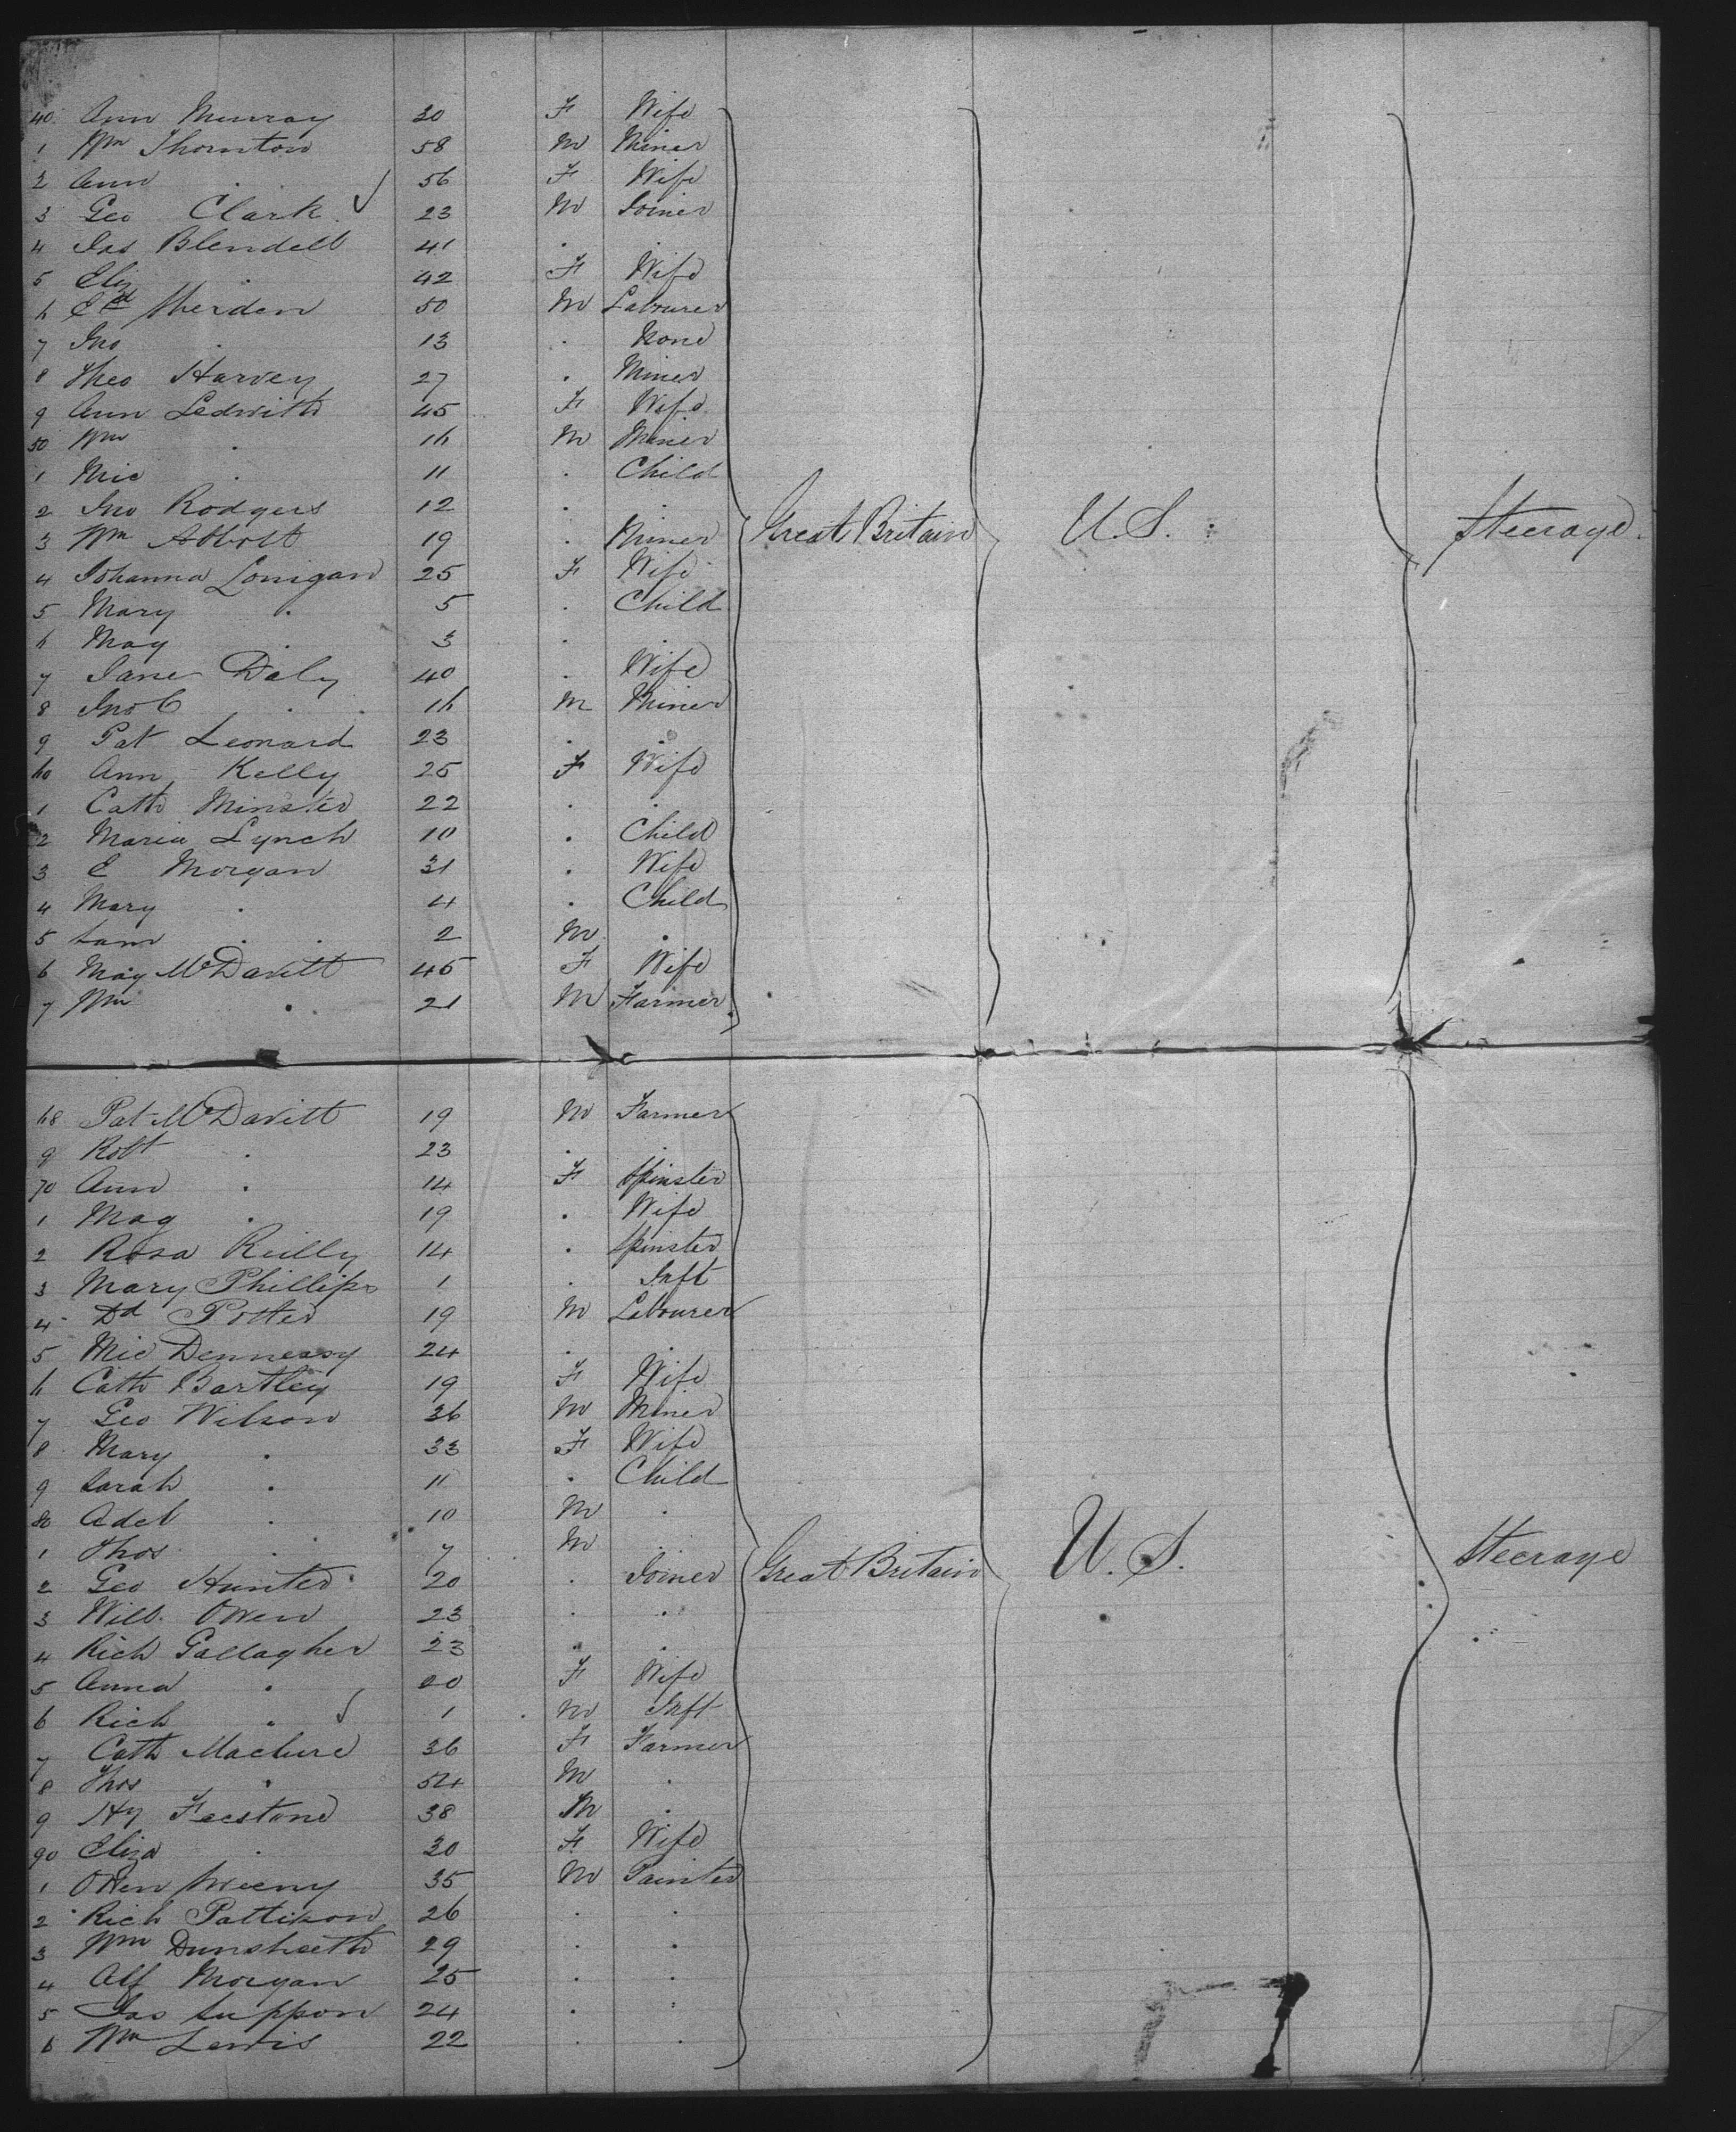 40 Ann Murray 30 F Wife
1 Wm Thornton 58 M Miner
2 Ann . 56 F Wife
3 Geo Clark 23 M Joiner
4 Jas Blendell 41 . .
5 Eliz . 42 F Wife
6 Ed Sherdan 50 M Labourer
7 Jno . 13 . None
8 Theo Harvey 27 . Miner
9 Ann Ledwith 45 F Wife
50 Wm . 16 M Miner
1 Mic . 11 . Child
2 Jno Rodgers 12 . .
3 Wm Abbott 19 . Miner Great Britain U.S. Steerage
4 Johanna Lonigan 25 F Wife
5 Mary . 5 . Child
6 May . 3 .
7 Jane Daly 40 . Wife
8 Jno C . . 16 M Miner
9 Pat Leonard 23 . .
60 Ann Kelly 25 F Wife
1 Cath Minster 22 . .
2 Maria Lynch 10 . Child
3 E Morgan 31 . Wife
4 Mary . 4 . Child
5 Sam . . 2 M .
6 May McDavitt 45 F Wife
7 Wm . 21 M Farmer
68 Pat McDavitt 19 M Farmer
9 Robt . 23 . .
70 Ann . 14 F Spinster
1 Mag . 19 . Wife
2 Rosa Reilly 14 . Spinster
3 Mary Phillips 1 . Inft
4 Dd Potter 19 M Labourer
5 Mic Denneasy 24 . .
6 Cath Bartley 19 F Wife
7 Geo Wilson 36 M Miner
8 Mary . 33 F Wife
9 Sarah . 11 . Child
80 Adel . 10 M .
1 Thos . 7 M
2 Geo Hunter 20 . Joiner Great Britain U.S. Steerage
3 Will. Owen 23 . .
4 Rich Gallagher 23 . .
5 Anna . 20 F Wife
6 Rich . 1 M Inft
7 Cath Maclure 36 F Farmer
8 Thos . 54 M .
9 Hy Feestone 38 M .
90 Eliza . 30 F Wife
1 Owen Sweeny 35 M Painter
2 Rich Pattison 26 . .
3 Wm Dunsheeth 29 . .
4 Alf Morgan 25 . .
5 Jas Suppon 24 . .
6 Wm Lewis 22 . .